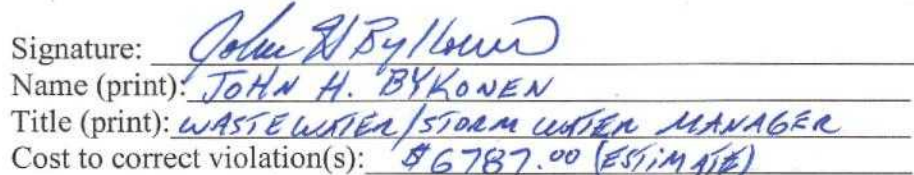 Signature: John H Bykonen
Name (print): JOHN H. BYKONEN
Title (print): WASTEWATER/STORM WATER MANAGER
Cost to correct violation(s): $6787.00 (ESTIMATE)